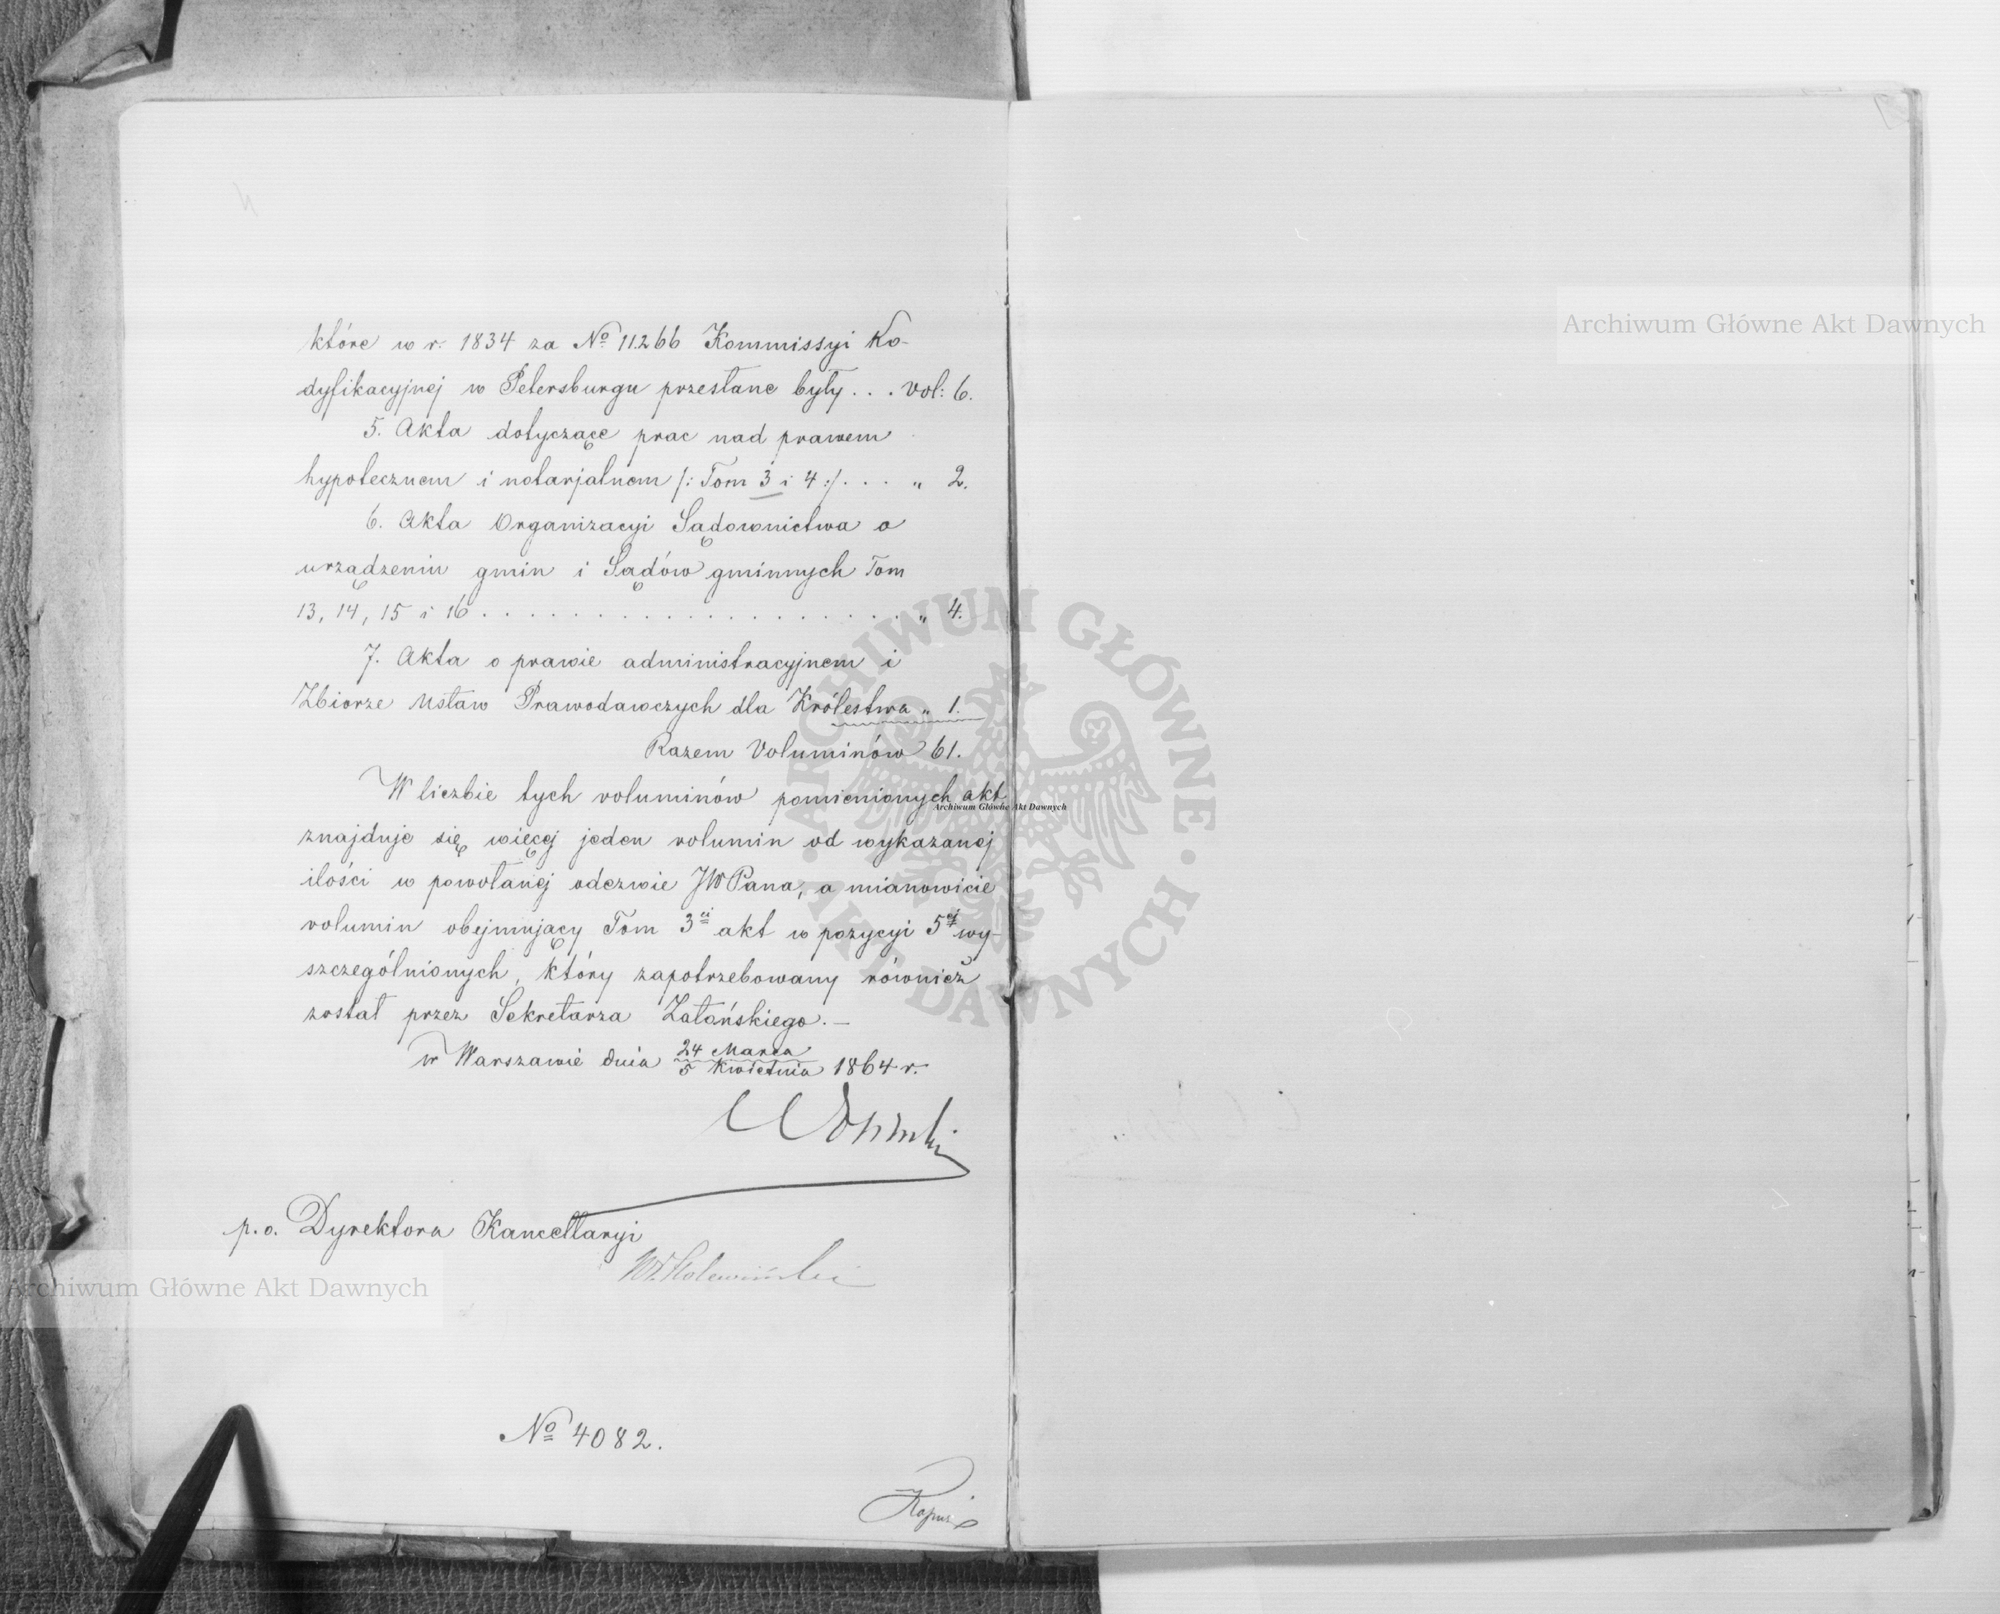 które w r. 1834 za No 11266 Kommissyi Ko-
dyfikacyjnej w Petersburgu przesłane były . . . vol: 6.
5. Akta dotyczące prac nad prawem
hypotecznem i notarjalnem /: Tom 3 i 4 :/ . . . „ 2.
6. Akta Organizacyi Sądownictwa o
urządzeniu gmin i Sądów gminnych Tom
13, 14, 15 i 16 . . . . . . . . . . . . . . . . . . . „ 4.
7. Akta o prawie administracyjnem i
Zbiorze Ustaw Prawodawczych dla Królestwa „ 1.
Razem Voluminów 61.
W liczbie tych voluminów pomienionych akt
znajduje się więcej jeden volumin od wykazanej
ilości w powołanej odezwie JW Pana, a mianowicie
volumin obejmujący Tom 3ci akt w pozycyi 5ej wy-
szczególnionych, który zapotrzebowany również
został przez Sekretarza Załońskiego. —
w Warszawie dnia 24 Marca / 5 Kwietnia 1864 r.
p. o. Dyrektora Kancellaryi
No 4082.
Archiwum Główne Akt Dawnych
Archiwum Główne Akt Dawnych
Archiwum Główne Akt Dawnych
ARCHIWUM GŁÓWNE · AKT DAWNYCH ·